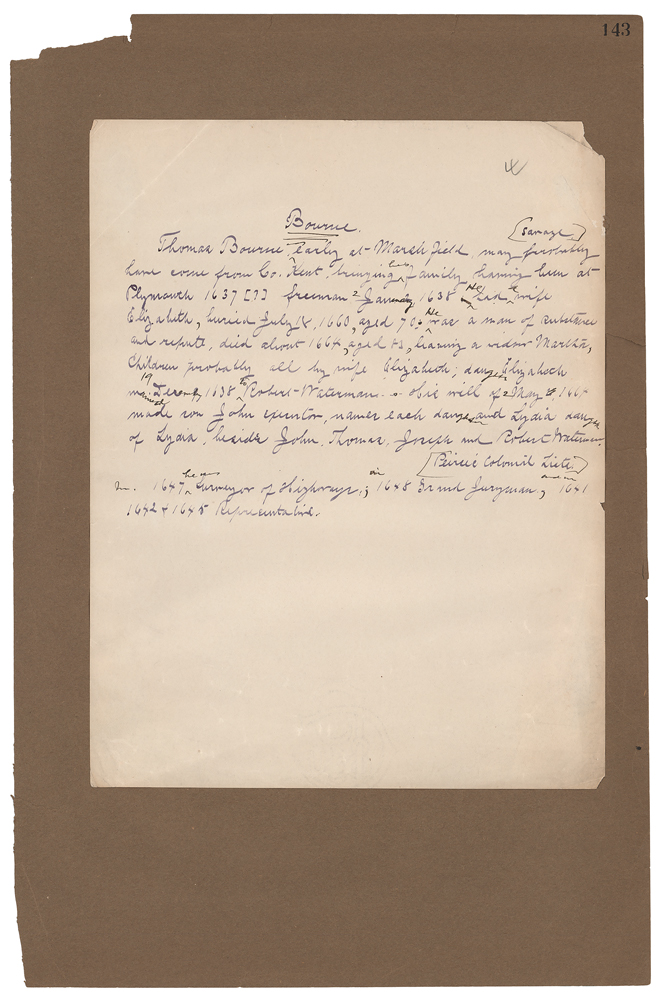 143
Bourne.
[Savage]
Thomas Bourne, early at Marshfield, may probably
have come from Co. Kent, bringing his family, having been at
Plymouth 1637 [?] freeman 2 January, 1638 He had wife
Elizabeth, buried July 18, 1660, aged 70. He was a man of substance
and repute, died about 1664, aged 83, leaving a widow Martha,
Children probably all by wife Elizabeth; Elizabeth
19 1638 to Robert Waterman. His will of 2 May, 1664
made son John executor, names each and Lydia
of Lydia, beside John, Thomas, Joseph and Robert Waterman
[Peirce Colonial Lists]
In 1647 he was Surveyor of Highways; in 1648 Grand Juryman, and in 1641
1642 & 1645 Representative.